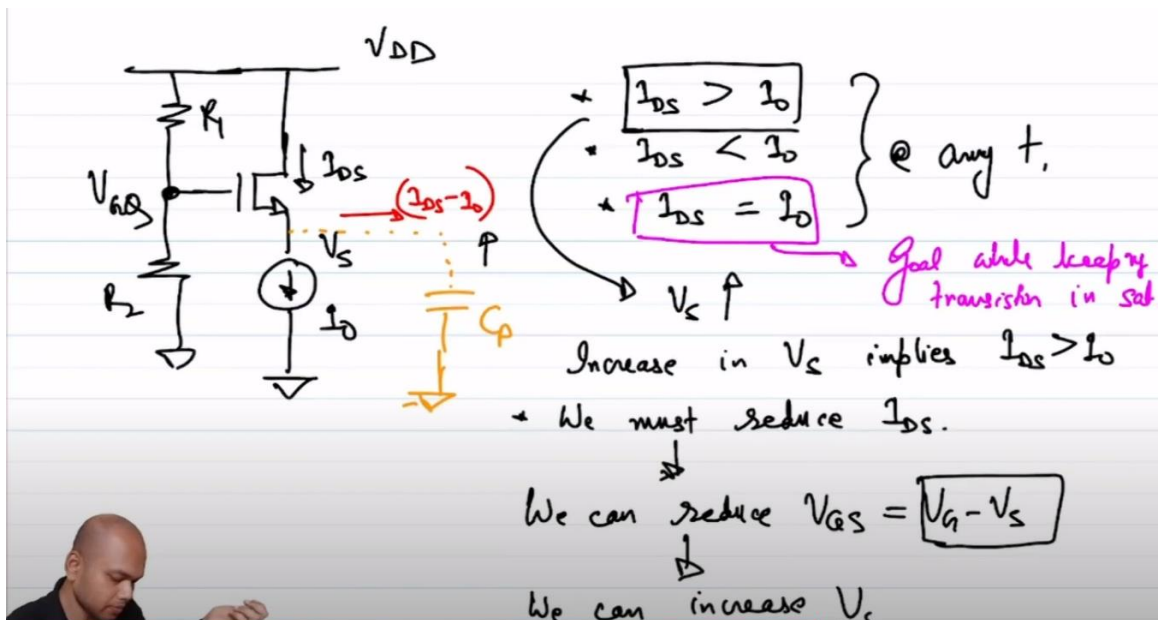 VDD
R1
IDS
VGQ
(IDS-I0)
VS
R2
I0
CP
* IDS > I0
* IDS < I0
* IDS = I0
@ any t,
Goal while keeping
transistor in sat
VS ↑
Increase in VS implies IDS > I0
* We must reduce IDS.
We can reduce VGS = VG - VS
We can increase VS